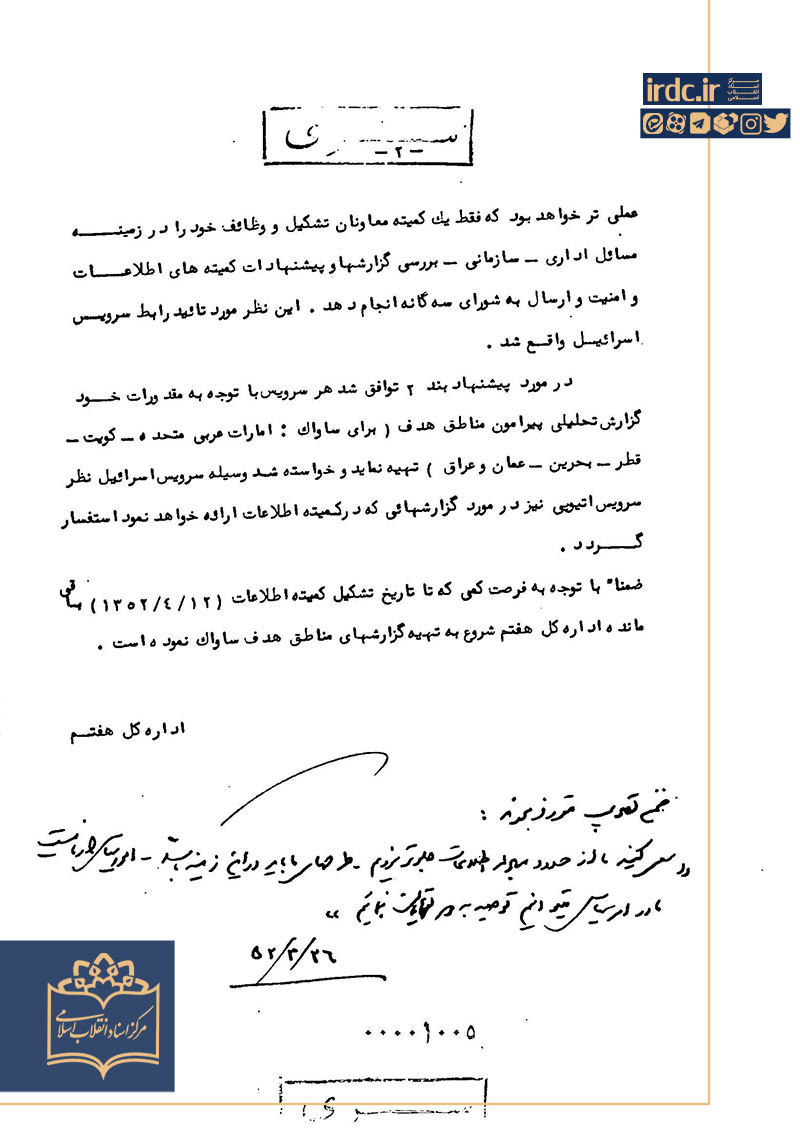 irdc.ir
مرکز اسناد انقلاب اسلامی
سری
-۲-
عملی تر خواهد بود که فقط یك کمیته معاونان تشکیل و وظائف خود را در زمینه
مسائل اداری - سازمانی - بررسی گزارشها و پیشنهادات کمیته های اطلاعات
و امنیت و ارسال به شورای سه گانه انجام دهد . این نظر مورد تائید رابط سرویس
اسرائیل واقع شد .
در مورد پیشنهاد بند ۲ توافق شد هر سرویس با توجه به مقدورات خود
گزارش تحلیلی پیرامون مناطق هدف ( برای ساواك : امارات عربی متحده - کویت -
قطر - بحرین - عمان و عراق ) تهیه نماید و خواسته شد وسیله سرویس اسرائیل نظر
سرویس اتیوپی نیز در مورد گزارشهائی که در کمیته اطلاعات ارائه خواهد نمود استفسار
گردد .
ضمنا" با توجه به فرصت کمی که تا تاریخ تشکیل کمیته اطلاعات (۱۳۵۲/٤/۱۲) باقی
مانده اداره کل هفتم شروع به تهیه گزارشهای مناطق هدف ساواك نموده است .
اداره کل هفتم
ضمن تصویب مقرر فرمودند :
سعی کنید ما از حدود مبادله اطلاعات جلوتر نرویم - طرحهای ما باید در این زمینه باشد -
ما در امر سیاسی توصیه به
۵۲/۳/۲۶
۰۰۰۰۱۰۰۵
مرکز اسناد انقلاب اسلامی
سری